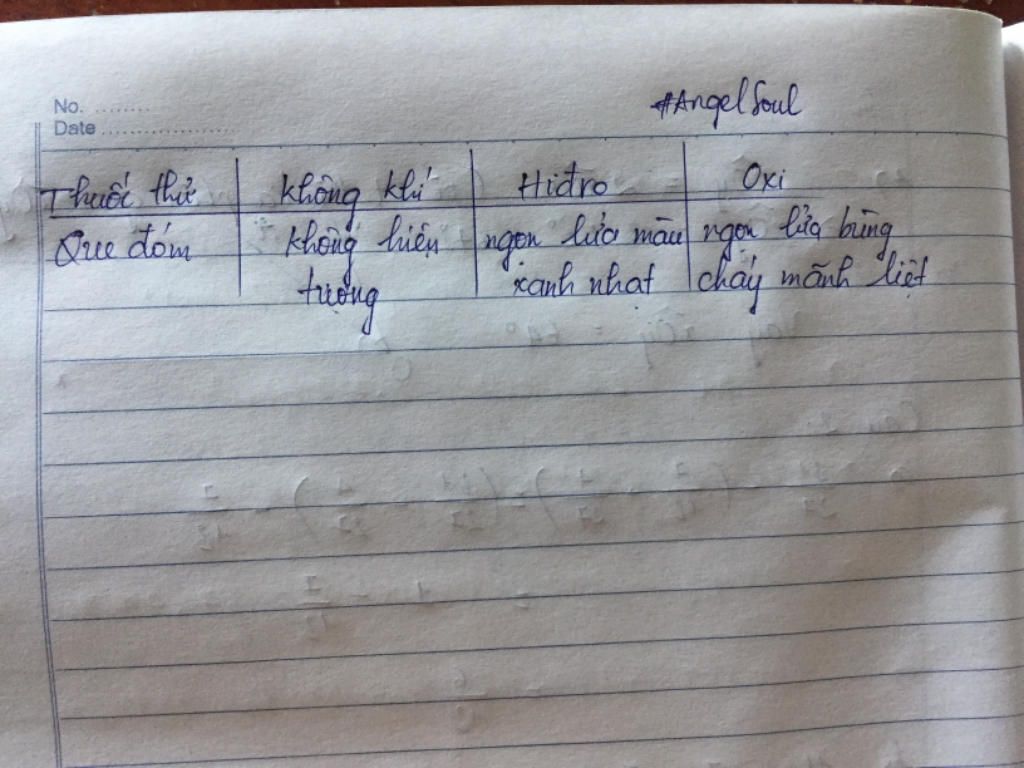 No. ........
Date ...................
#AngelSoul
Thuốc thử không khí Hiđro Oxi
Que đóm không hiện ngọn lửa màu ngọn lửa bùng
tượng xanh nhạt cháy mãnh liệt